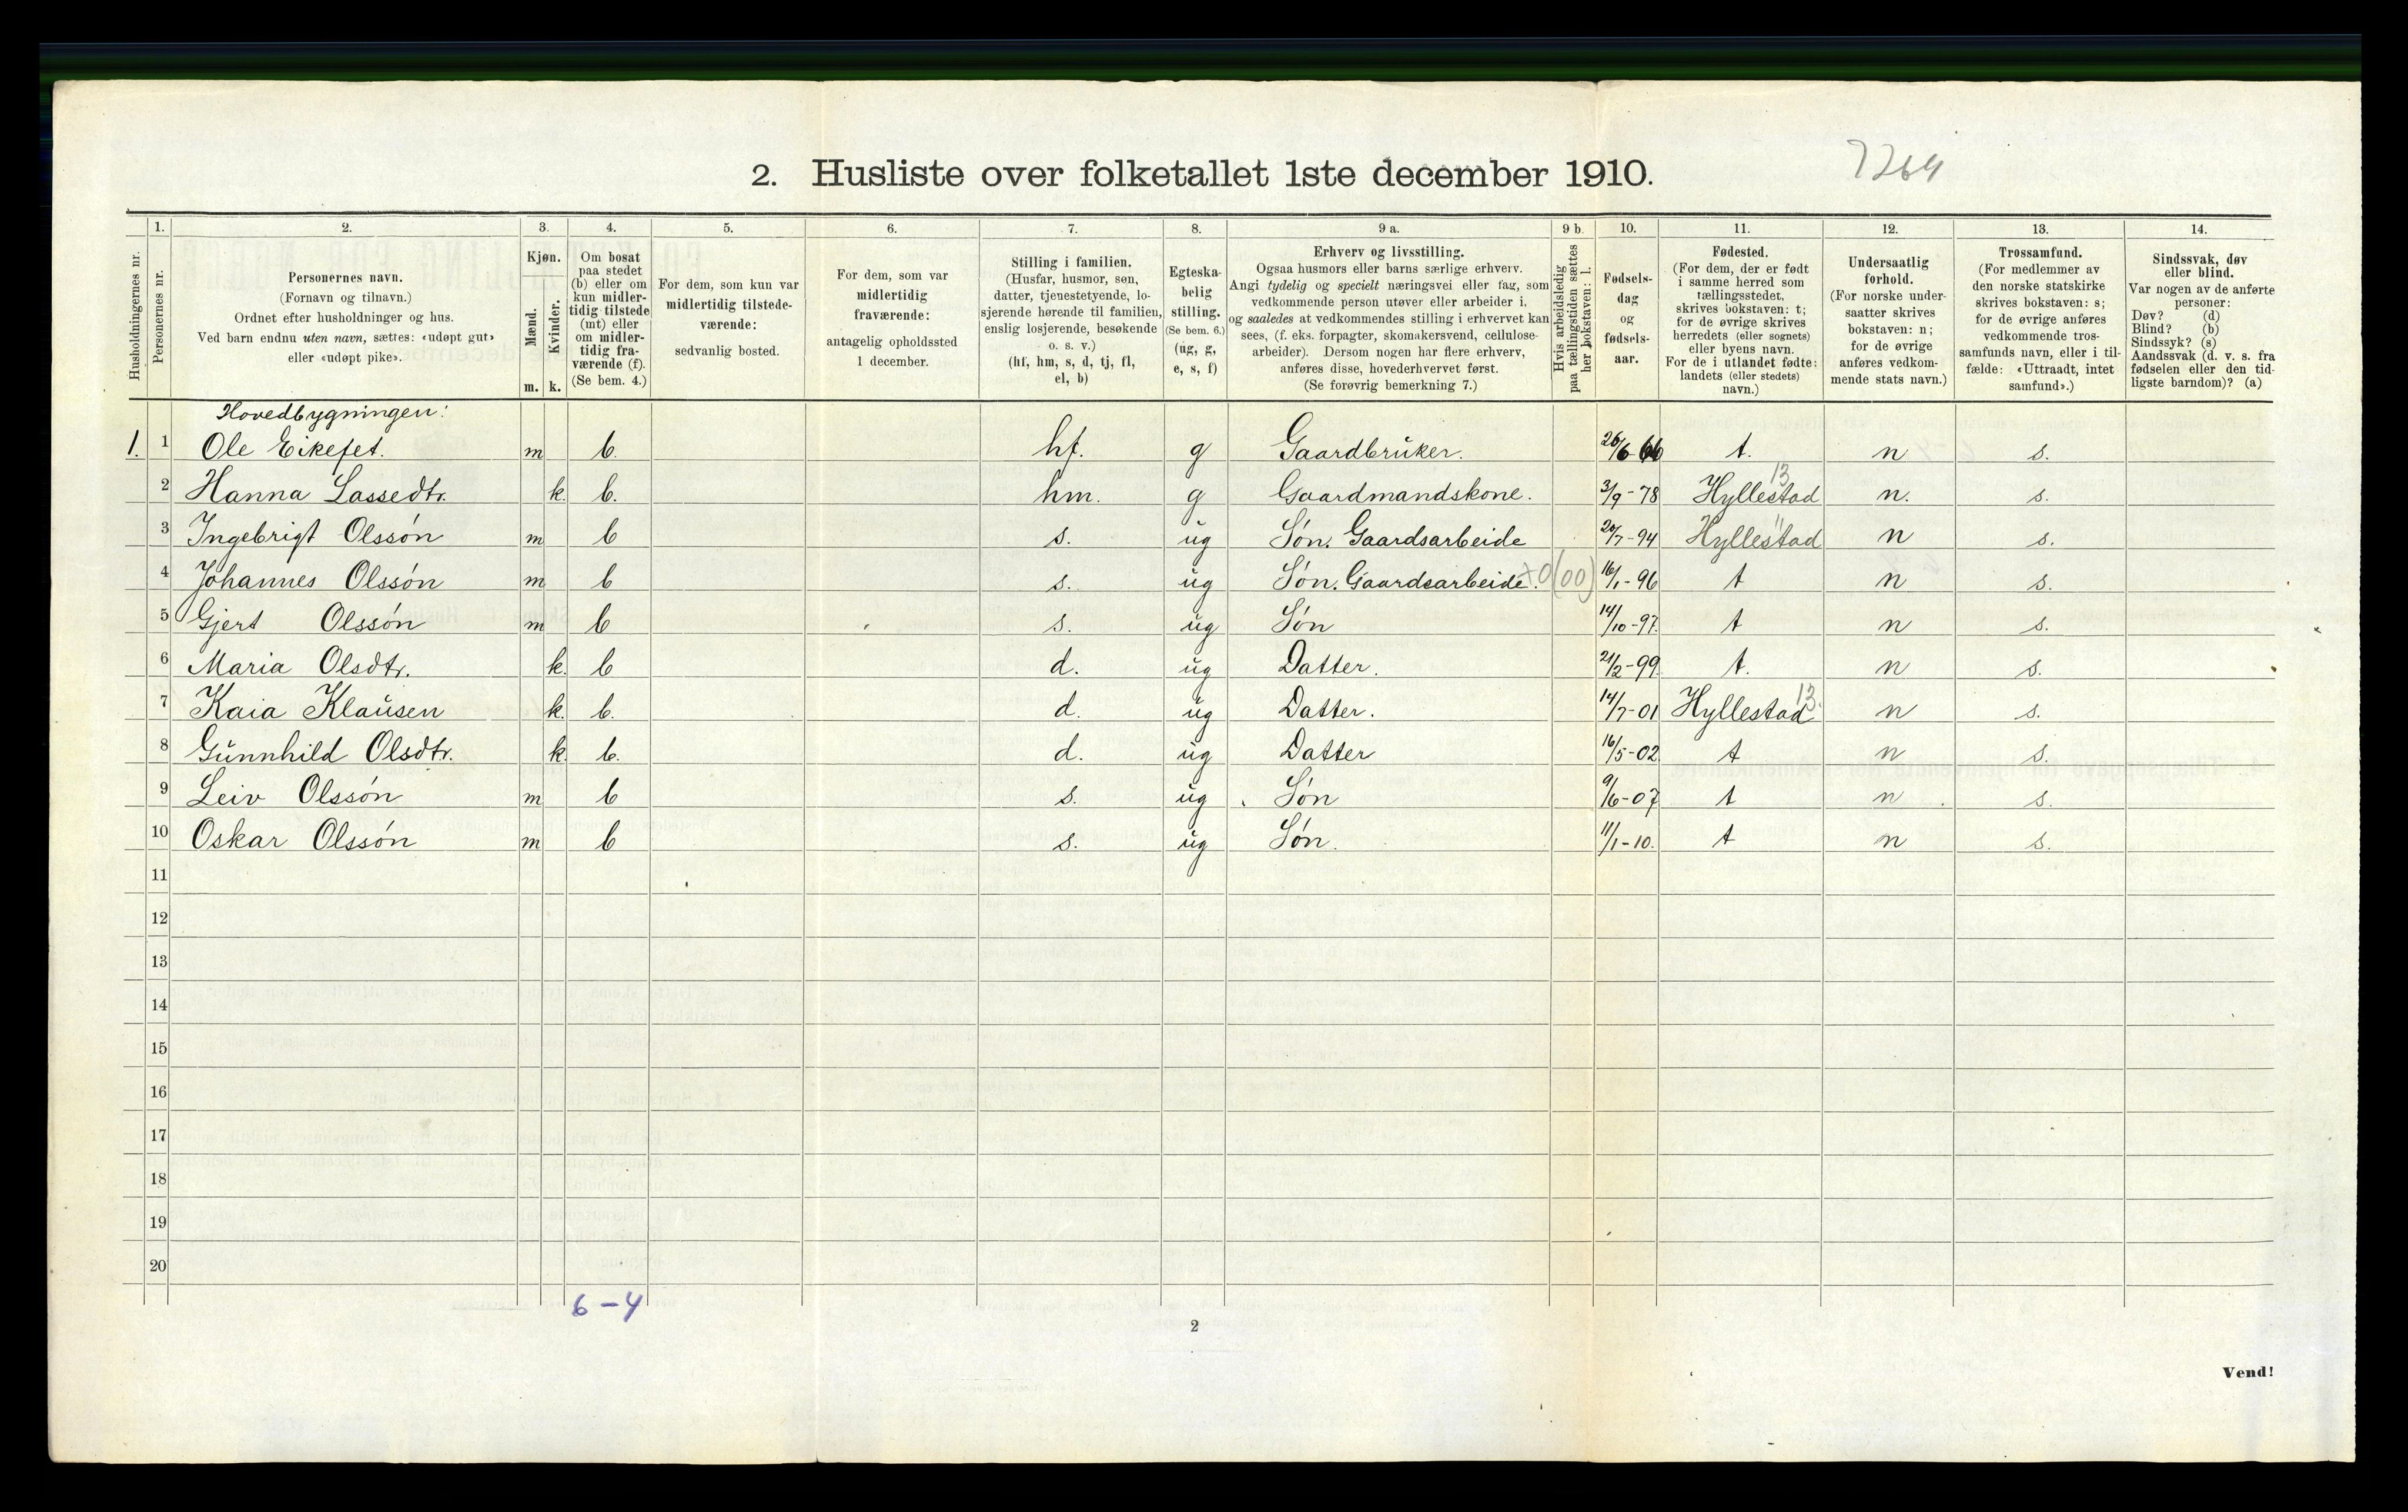 2. Husliste over folketallet 1ste december 1910.
7264
Husholdningernes nr.
1.
Personernes nr.
2.
Personernes navn.
(Fornavn og tilnavn.)
Ordnet efter husholdninger og hus.
Ved barn endnu uten navn, sættes: «udøpt gut»
eller «udøpt pike».
3.
Kjøn.
Mænd.
Kvinder.
m. k.
4.
Om bosat
paa stedet
(b) eller om
kun midler-
tidig tilstede
(mt) eller
om midler-
tidig fra-
værende (f).
(Se bem. 4.)
5.
For dem, som kun var
midlertidig tilstede-
værende:
sedvanlig bosted.
6.
For dem, som var
midlertidig
fraværende:
antagelig opholdssted
1 december.
7.
Stilling i familien.
(Husfar, husmor, søn,
datter, tjenestetyende, lo-
sjerende hørende til familien,
enslig losjerende, besøkende
o. s. v.)
(hf, hm, s, d, tj, fl,
el, b)
8.
Egteska-
belig
stilling.
(Se bem. 6.)
(ug, g,
e, s, f)
9 a.
Erhverv og livsstilling.
Ogsaa husmors eller barns særlige erhverv.
Angi tydelig og specielt næringsvei eller fag, som
vedkommende person utøver eller arbeider i,
og saaledes at vedkommendes stilling i erhvervet kan
sees, (f. eks. forpagter, skomakersvend, cellulose-
arbeider). Dersom nogen har flere erhverv,
anføres disse, hovederhvervet først.
(Se forøvrig bemerkning 7.)
9 b.
Hvis arbeidsledig
paa tællingstiden sættes
her bokstaven: l.
10.
Fødsels-
dag
og
fødsels-
aar.
11.
Fødested.
(For dem, der er født
i samme herred som
tællingsstedet,
skrives bokstaven: t;
for de øvrige skrives
herredets (eller sognets)
eller byens navn.
For de i utlandet fødte:
landets (eller stedets)
navn.)
12.
Undersaatlig
forhold.
(For norske under-
saatter skrives
bokstaven: n;
for de øvrige
anføres vedkom-
mende stats navn.)
13.
Trossamfund.
(For medlemmer av
den norske statskirke
skrives bokstaven: s;
for de øvrige anføres
vedkommende tros-
samfunds navn, eller i til-
fælde: «Uttraadt, intet
samfund».)
14.
Sindssvak, døv
eller blind.
Var nogen av de anførte
personer:
Døv? (d)
Blind? (b)
Sindssyk? (s)
Aandssvak (d. v. s. fra
fødselen eller den tid-
ligste barndom)? (a)
Hovedbygningen:
1. 1 Ole Eikefet. m b. hf. g Gaardbruker. 26/6-66 t. n s.
2 Hanna Lassedtr. k. b. hm. g Gaardmandskone. 3/9-78 Hyllestad 13 n. s.
3 Ingebrigt Olssøn m b s. ug Søn. Gaardsarbeide 20/7-94 Hyllestad " n s.
4 Johannes Olssøn m b s. ug Søn. Gaardsarbeide. +0(00) 16/1-96 t n s.
5 Gjert Olssøn m b s. ug Søn 14/10-97. t n s.
6 Maria Olsdtr. k. b d. ug Datter. 21/2-99. t. n s.
7 Kaia Klausen k. b. d. ug Datter. 14/7-01 Hyllestad 13. n s.
8 Gunnhild Olsdtr. k. b. d. ug Datter 16/5-02 t n s.
9 Leiv Olssøn m b s. ug Søn 9/6-07 t n s.
10 Oskar Olssøn m b s. ug Søn. 11/1-10. t n s.
11
12
13
14
15
16
17
18
19
20
6-4
2
Vend!